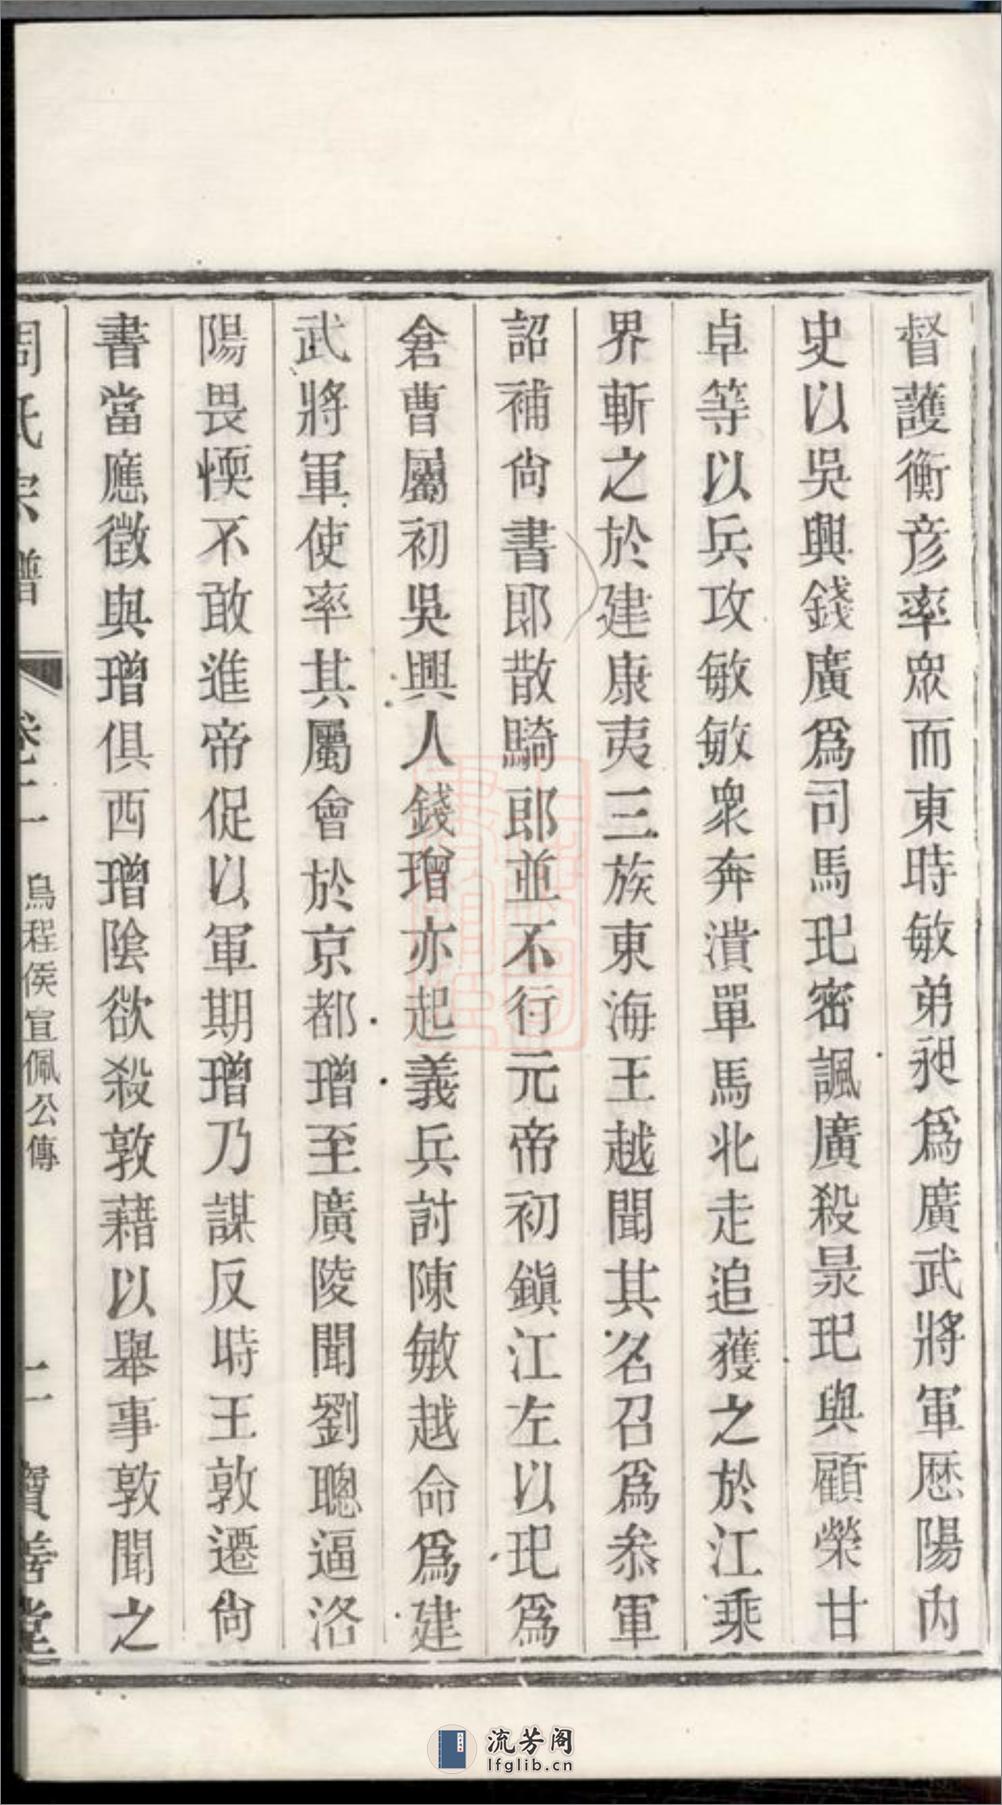 督護衡彦率眾而東時敏弟昶爲廣武將軍歷陽內
史以吳興錢廣爲司馬玘密諷廣殺昶玘與顧榮甘
卓等以兵攻敏敏衆奔潰單馬北走追獲之於江乘
界斬之於建康夷三族東海王越聞其名召爲叅軍
詔補尚書郎散騎郎並不行元帝初鎭江左以玘爲
倉曹屬初吳興人錢璔亦起義兵討陳敏越命爲建
武將軍使率其屬會於京都璔至廣陵聞劉聰逼洛
陽畏愞不敢進帝促以軍期璔乃謀反時王敦遷尙
書當應徵與璔俱西璔陰欲殺敦藉以舉事敦聞之
周氏宗譜 烏程侯宣佩公傳 二 寶善堂
流芳阁
lfglib.cn